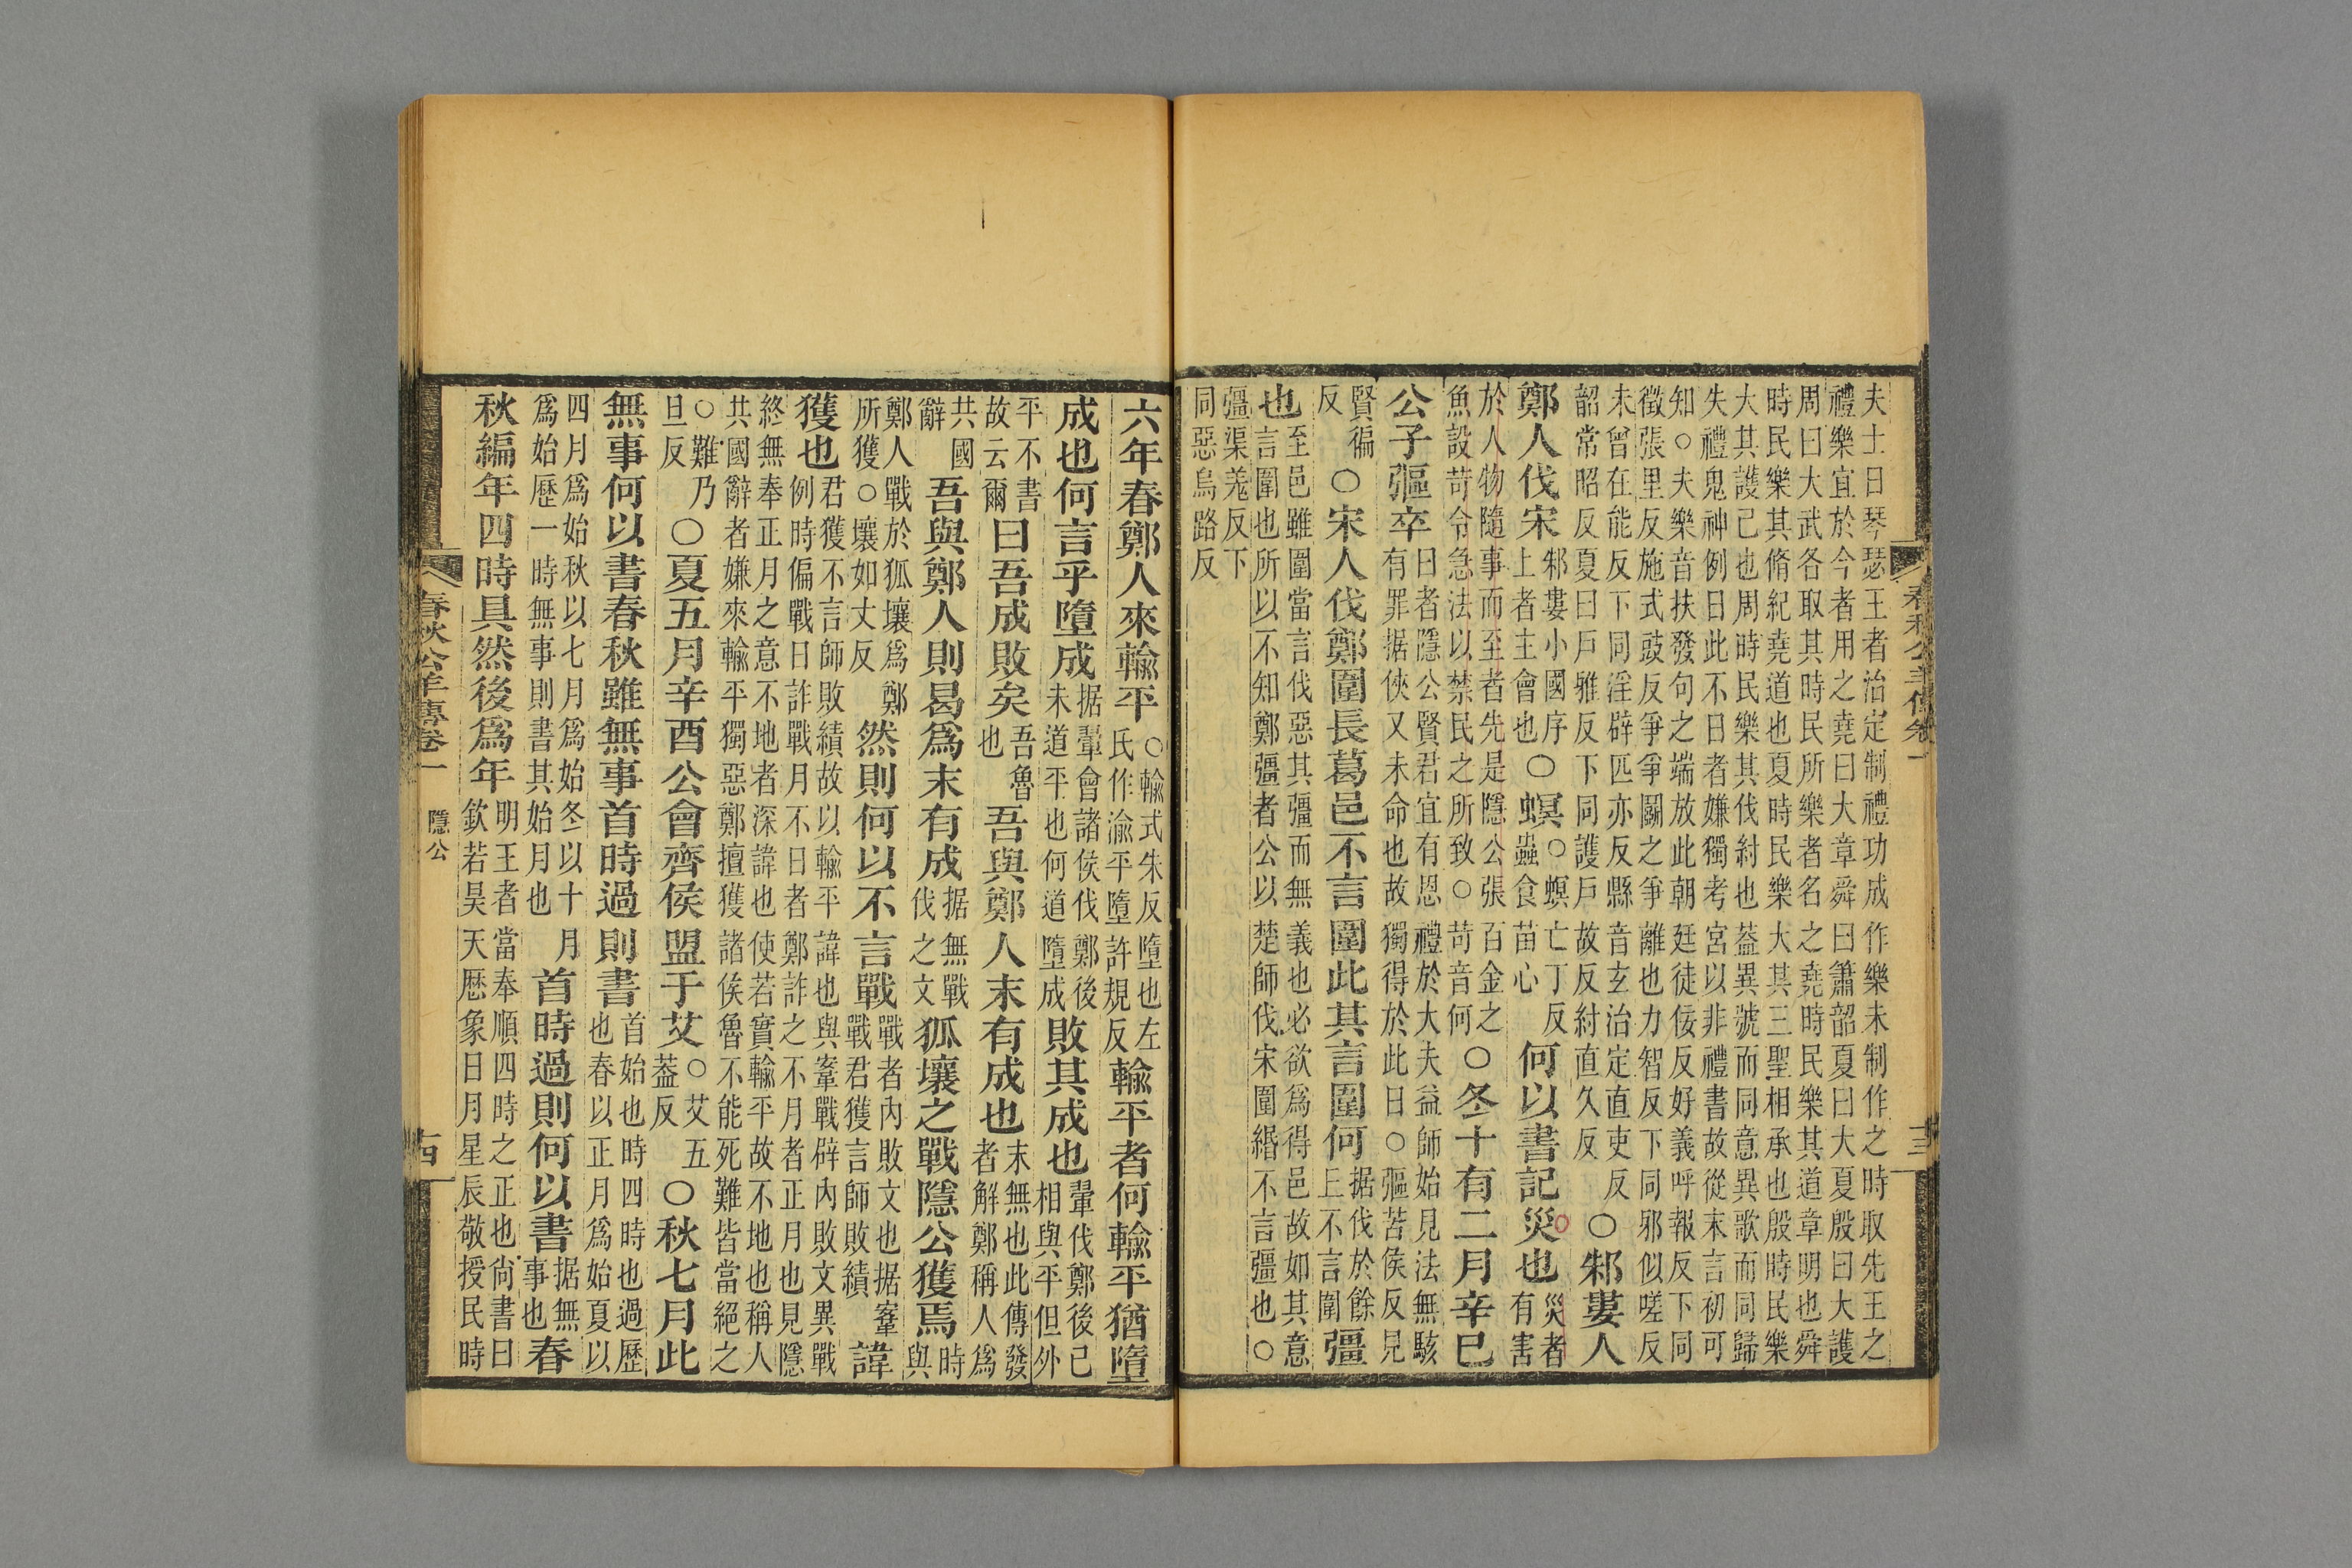 夫士日琴瑟王者治定制禮功成作樂未制作之時取先王之
禮樂宜於今者用之堯曰大章舜曰簫韶夏曰大夏殷曰大護
周曰大武各取其時民所樂者名之堯時民樂其道章明也舜
時民樂其脩紀堯道也夏時民樂大其三聖相承也殷時民樂
大其護己也周時民樂其伐紂也葢異號而同意異歌而同歸
失禮鬼神例日此不日者嫌獨考宮以非禮書故從末言初可
知○夫樂音扶發句之端放此朝廷徒佞反好義呼報反下同
徵張里反施式豉反爭爭鬭之爭離也力智反下同邪似嗟反
未曾在能反下同淫辟匹亦反縣音玄治定直吏反韶常昭反夏曰戶雅反下同護戶故反紂直久反○邾婁人
鄭人伐宋邾婁小國序上者主會也○螟○螟亡丁反蟲食苗心何以書記災也災者有害
於人物隨事而至者先是隱公張百金之魚設苛令急法以禁民之所致○苛音何○冬十有二月辛巳
公子彄卒日者隱公賢君宜有恩禮於大夫益師始見法無駭有罪据俠又未命也故獨得於此日○彄苦侯反見
賢徧反○宋人伐鄭圍長葛邑不言圍此其言圍何据伐於餘上不言圍彊
也至邑雖圍當言伐惡其彊而無義也必欲爲得邑故如其意言圍也所以不知鄭彊者公以楚師伐宋圍緡不言彊也○
彊渠羗反下同惡烏路反
春秋公羊傳卷一
十三
六年春鄭人來輸平○輸式朱反墮也左氏作渝平墮許規反輸平者何輸平猶墮
成也何言乎墮成据翬會諸侯伐鄭後未道平也何道墮成敗其成也翬伐鄭後已相與平但外
平不書故云爾曰吾成敗矣吾魯也吾與鄭人末有成也末無也此傳發者解鄭稱人爲
共國辭吾與鄭人則曷爲末有成据無戰伐之文狐壤之戰隱公獲焉時與
鄭人戰於狐壤爲鄭所獲○壤如丈反然則何以不言戰戰者內敗文也据鞌戰君獲言師敗績諱
獲也君獲不言師敗績故以輸平諱也與鞌戰辟內敗文異戰例時偏戰日詐戰月不日者鄭詐之不月者正月也見隱
終無奉正月之意不地者深諱也使若實輸平故不地也稱人共國辭者嫌來輸平獨惡鄭擅獲諸侯魯不能死難皆當絕之
○難乃旦反○夏五月辛酉公會齊侯盟于艾○艾五葢反○秋七月此
無事何以書春秋雖無事首時過則書首始也時四時也過歷也春以正月爲始夏以
四月爲始秋以七月爲始冬以十月爲始歷一時無事則書其始月也首時過則何以書据無事也春
秋編年四時具然後爲年明王者當奉順四時之正也尙書曰欽若昊天歷象日月星辰敬授民時
春秋公羊傳卷一
隱公
十四